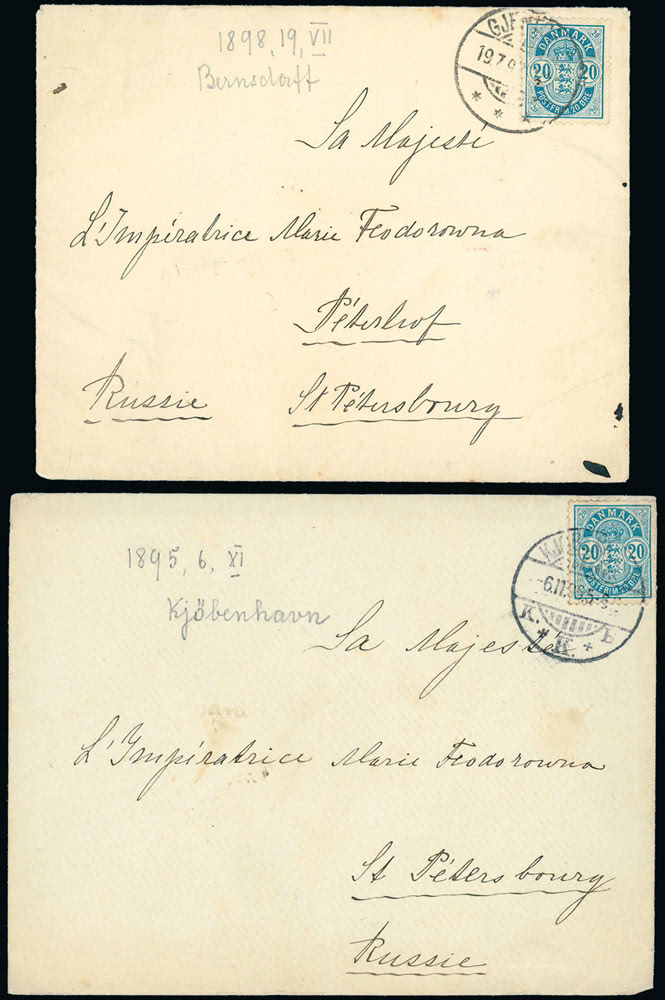 1898, 19, VII
Bernsdorff
19.7.9
DANMARK
20 20
POSTFRIM. 20 ØRE
Sa Majesté
L'Impératrice Marie Feodorowna
Péterhof
Russie
St Pétersbourg
1895, 6, XI
Kjöbenhavn
6.11.95
K. K. B
DANMARK
20 20
POSTFRIM. 20 ØRE
Sa Majesté
L'Impératrice Marie Feodorowna
St Pétersbourg
Russie